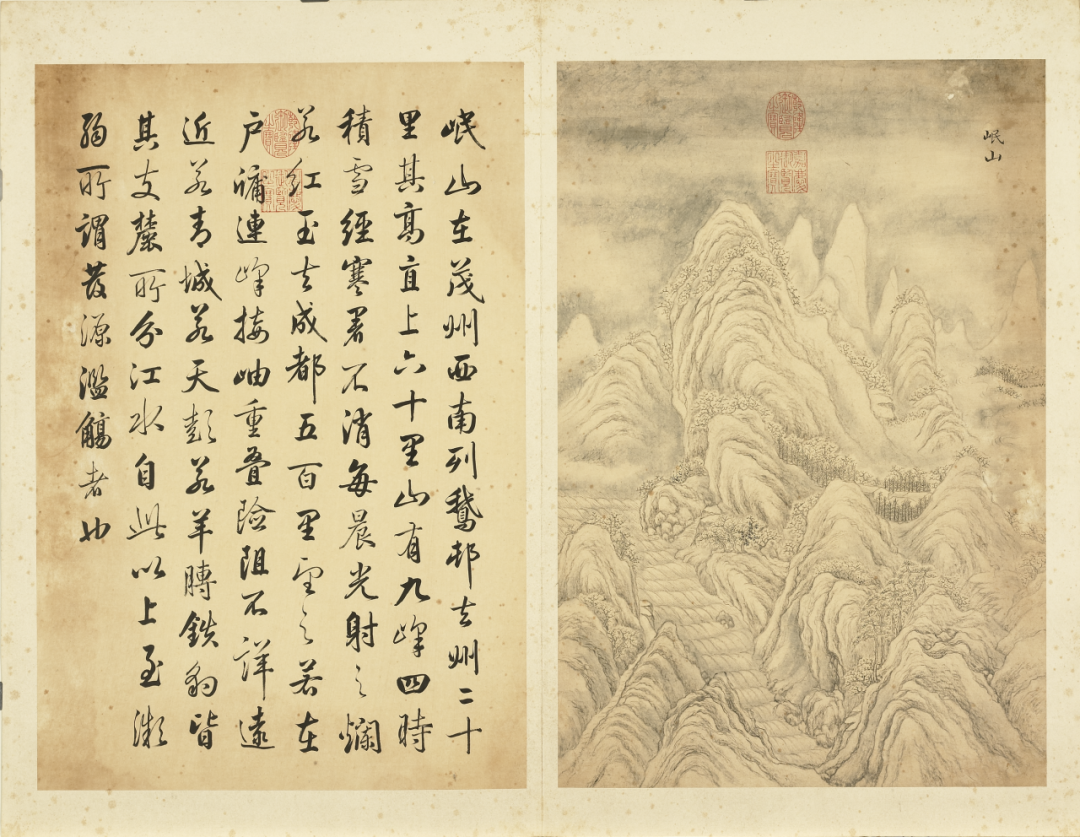 岷山
岷山在茂州西南列鵞邨去州二十
里其高直上六十里山有九峰四時
積雪經寒暑不消每晨光射之爛
若紅玉去成都五百里望之若在
戶牖連峰接岫重疊險阻不詳遠
近若青城若天彭若羊膊銕豹皆
其支麓所分江水自此以上至微
弱所謂發源濫觴者也